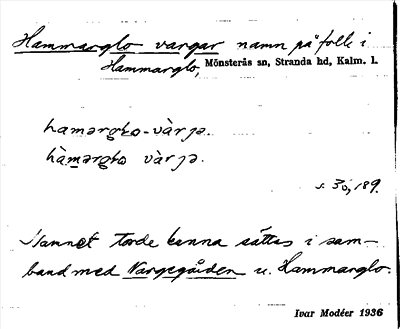 Hammarglo vargar namn på folk i
Hammarglo, Mönsterås sn, Stranda hd, Kalm. l.
hamərglo-vàrjə.
hàmərglo vàrjə.
s. 30, 189.
Namnet torde kunna sättas i sam-
band med Vargegården u. Hammarglo.
Ivar Modéer 1936